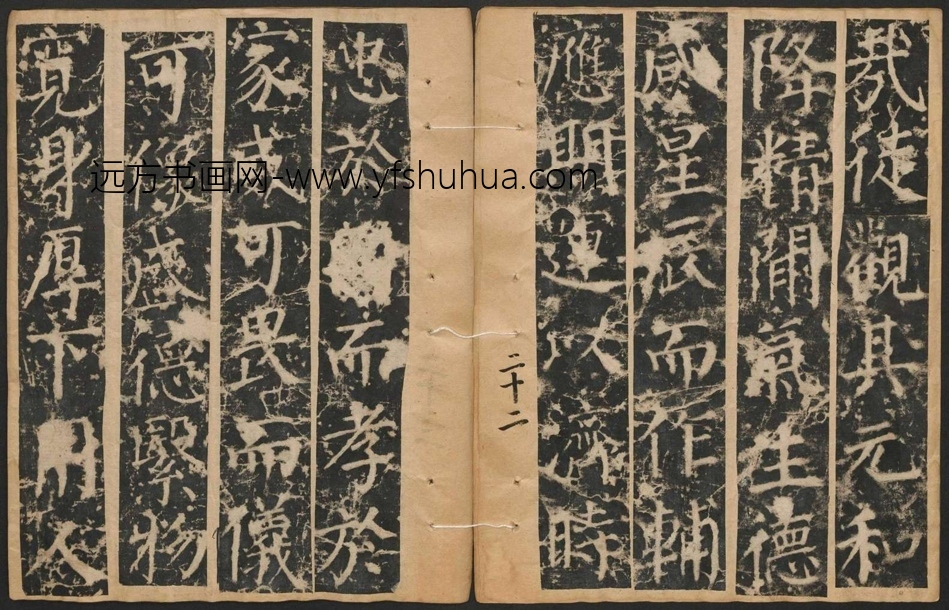 哉徒觀其元和
降精閒氣生德
感星辰而作輔
應期運以濟時
二十二
忠於而孝於
家威可畏而儀
可盛德物
寬身厚下用人
远方书画网-www.yfshuhua.com